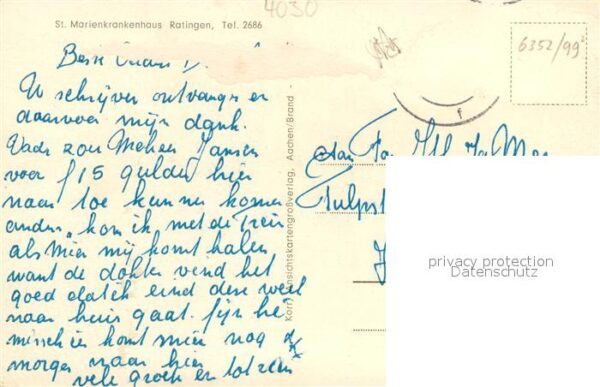 4030
St. Marienkrankenhaus Ratingen, Tel. 2686
6352/99²
Beste
U schrijven ontvangen en
daarvoor mijn dank.
Vader zou Meneer Jansen
voor f 15 gulden hier
naar toe kunnen komen
anders kon ik met de Trein
als Mien mij komt halen
want de dokter vind het
goed dat ik eind dese week
naar huis gaat.
misschien komt Mien nog
morgen naar hier
vele groeten en tot zien
Korr, Ansichtskartengroßverlag, Aachen/Brand
Aan Fam.
Tulpst
privacy protection
Datenschutz